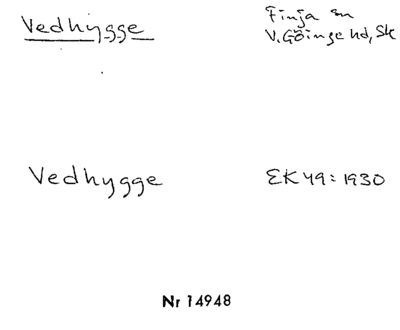 Vedhygge
Finja sn
V. Göinge hd, Sk
Vedhygge
EK 49: 1930
Nr 14948